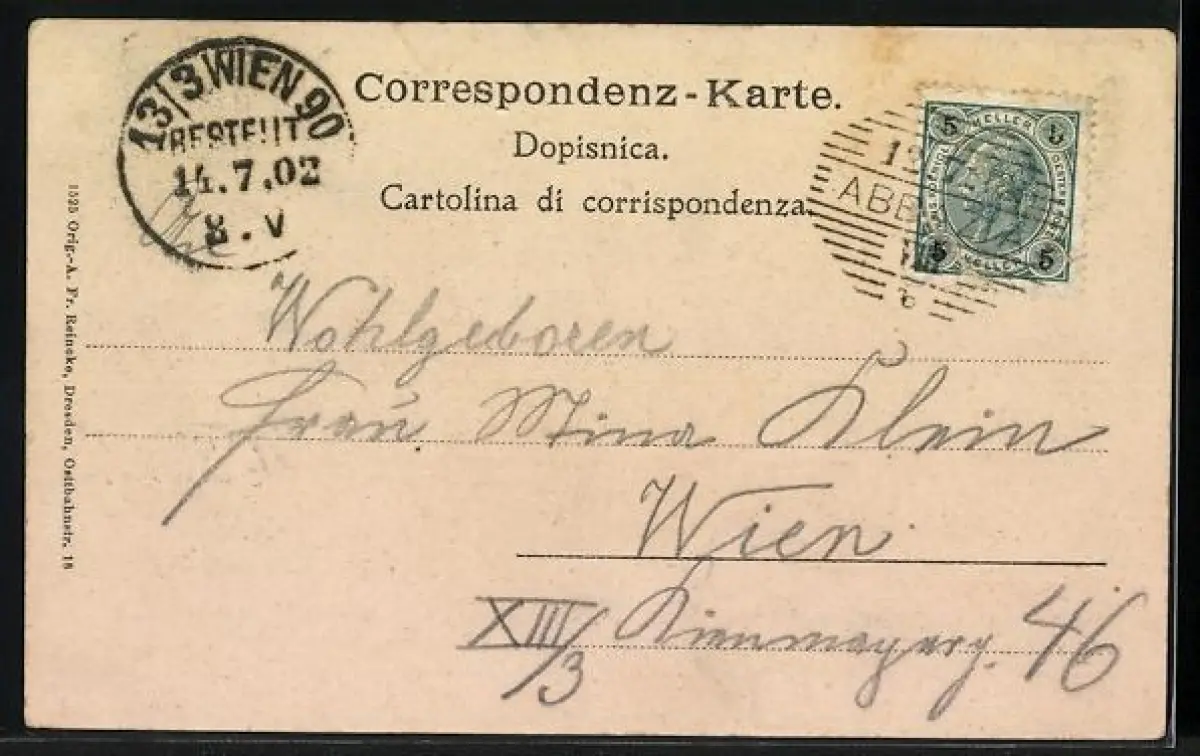 Correspondenz-Karte.
Dopisnica.
Cartolina di corrispondenza.
13/3 WIEN 90
BESTELLT
14.7.02
8.V
5 HELLER 5
5 HELLER 5
ABB
1525 Orig.-A. Fr. Reineke, Dresden, Ostbahnstr. 18
Wohlgeboren
Frau Mina Klein
Wien
XIII/3 Kienmayerg. 46